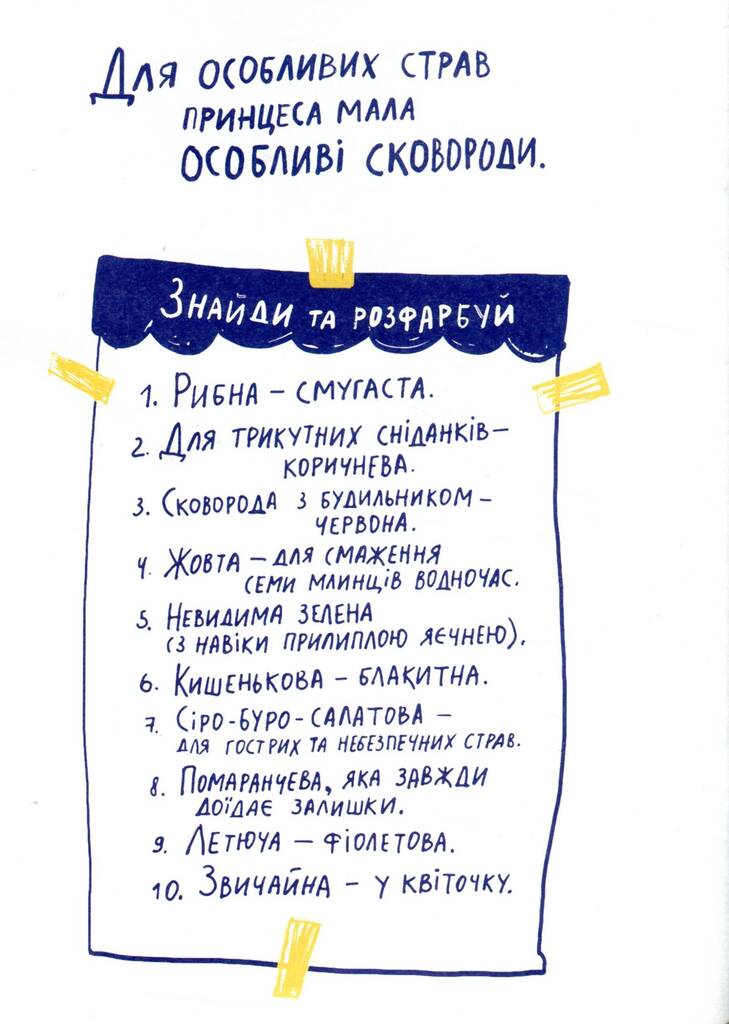 Для особливих страв
принцеса мала
особливі сковороди.
Знайди та розфарбуй
1. Рибна – смугаста.
2. Для трикутних сніданків–
коричнева.
3. Сковорода з будильником –
червона.
4. Жовта – для смаження
семи млинців водночас.
5. Невидима зелена
(з навіки прилиплою яєчнею).
6. Кишенькова – блакитна.
7. Сіро-буро-салатова –
для гострих та небезпечних страв.
8. Помаранчева, яка завжди
доїдає залишки.
9. Летюча – фіолетова.
10. Звичайна – у квіточку.